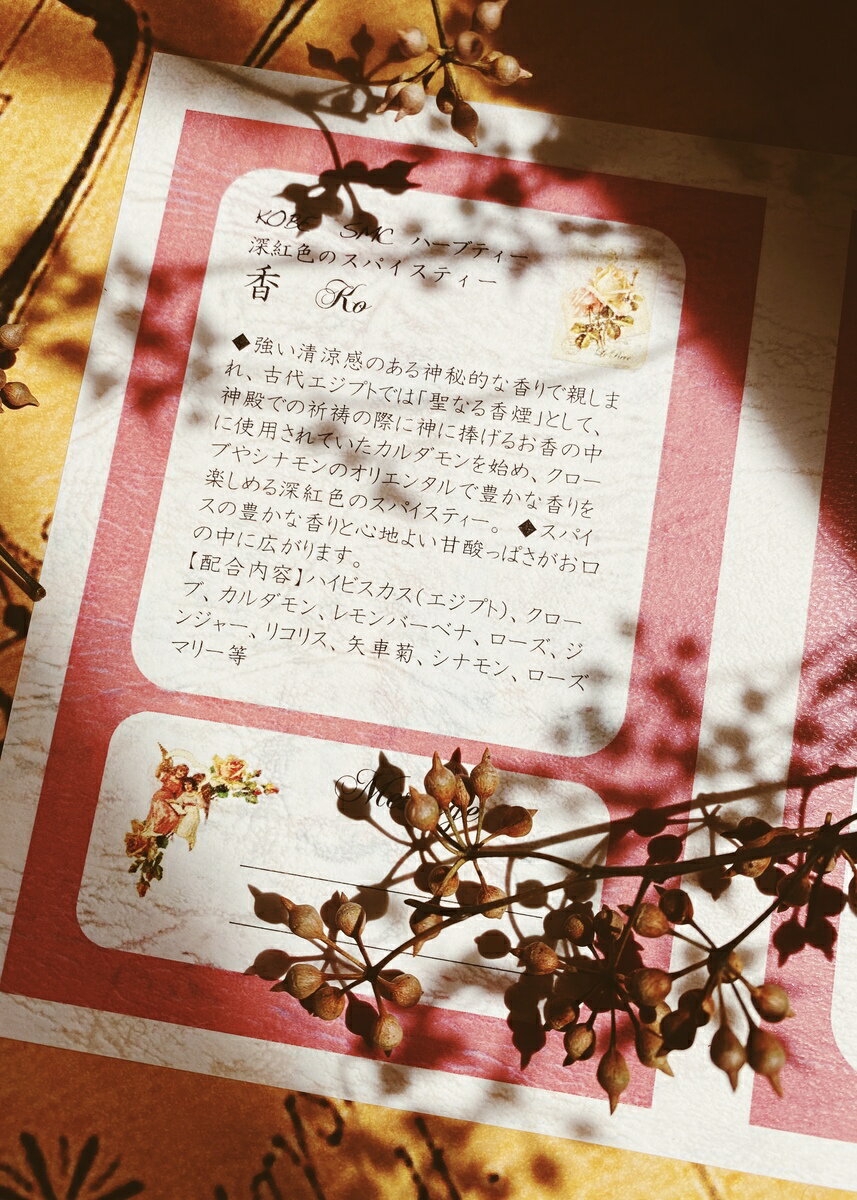 KOBE SMC ハーブティー
深紅色のスパイスティー
香 Ko
◆強い清涼感のある神秘的な香りで親しま
れ、古代エジプトでは「聖なる香煙」として、
神殿での祈祷の際に神に捧げるお香の中
に使用されていたカルダモンを始め、クロー
ブやシナモンのオリエンタルで豊かな香りを
楽しめる深紅色のスパイスティー。◆スパイ
スの豊かな香りと心地よい甘酸っぱさがお口
の中に広がります。
【配合内容】ハイビスカス(エジプト)、クロー
ブ、カルダモン、レモンバーベナ、ローズ、ジ
ンジャー、リコリス、矢車菊、シナモン、ローズ
マリー等